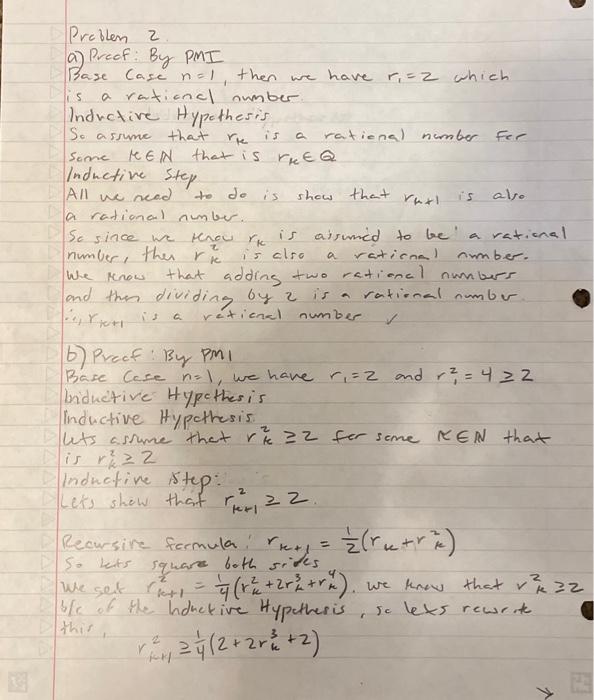 Problem 2
a) Proof: By PMI
Base Case n=1, then we have r₁=2 which
is a rational number.
Inductive Hypothesis
So assume that rₖ is a rational number for
some K∈N that is rₖ∈Q
Inductive Step
All we need to do is show that rₖ₊₁ is also
a rational number.
So since we know rₖ is assumed to be a rational
number, then rₖ² is also a rational number.
We know that adding two rational numbers
and then dividing by 2 is a rational number.
∴, rₖ₊₁ is a rational number ✓
b) Proof: By PMI
Base Case n=1, we have r₁=2 and r₁²=4≥2
Inductive Hypothesis
Inductive Hypothesis
Lets assume that rₖ²≥2 for some K∈N that
is rₖ²≥2
Inductive Step:
Lets show that rₖ₊₁²≥2.
Recursive formula: rₖ₊₁=½(rₖ+rₖ²)
So lets square both sides
We get rₖ₊₁²=¼(rₖ²+2rₖ³+rₖ⁴). we know that rₖ²≥2
b/c of the Inductive Hypothesis, so lets rewrite
this,
rₖ₊₁²≥¼(2+2rₖ³+2)
→